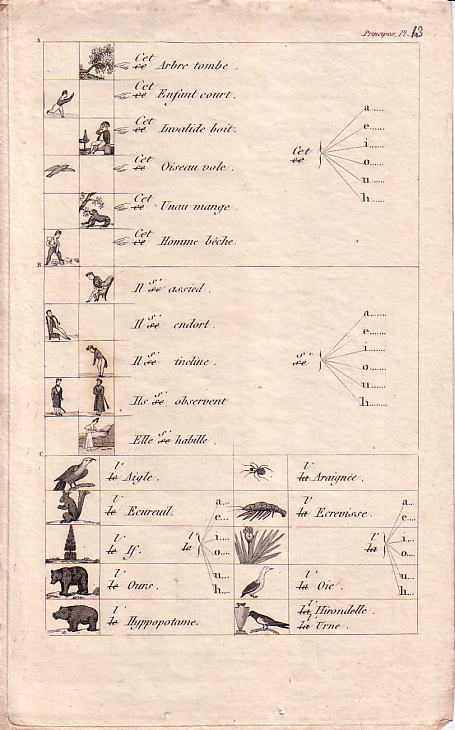 Principes, Pl. 13
A
Cet
ce Arbre tombe.
Cet
ce Enfant court.
Cet
ce Invalide boit.
Cet
ce Oiseau vole.
Cet
ce Unau mange.
Cet
ce Homme bêche.
Cet
ce
a......
e......
i......
o......
u......
h......
B
Il s' se assied.
Il s' se endort.
Il s' se incline.
Ils s' se observent
Elle s' se habille.
s'
se
a......
e......
i......
o......
u......
h......
C
l'
le Aigle.
l'
le Ecureuil.
l'
le If.
l'
le Ours.
l'
le Hyppopotame.
l'
le
a...
e...
i...
o...
u...
h...
l'
la Araignée.
l'
la Ecrevisse.
l'
la Oie.
l'
la Hirondelle.
l'
la Urne.
l'
la
a...
e...
i...
o...
u...
h...